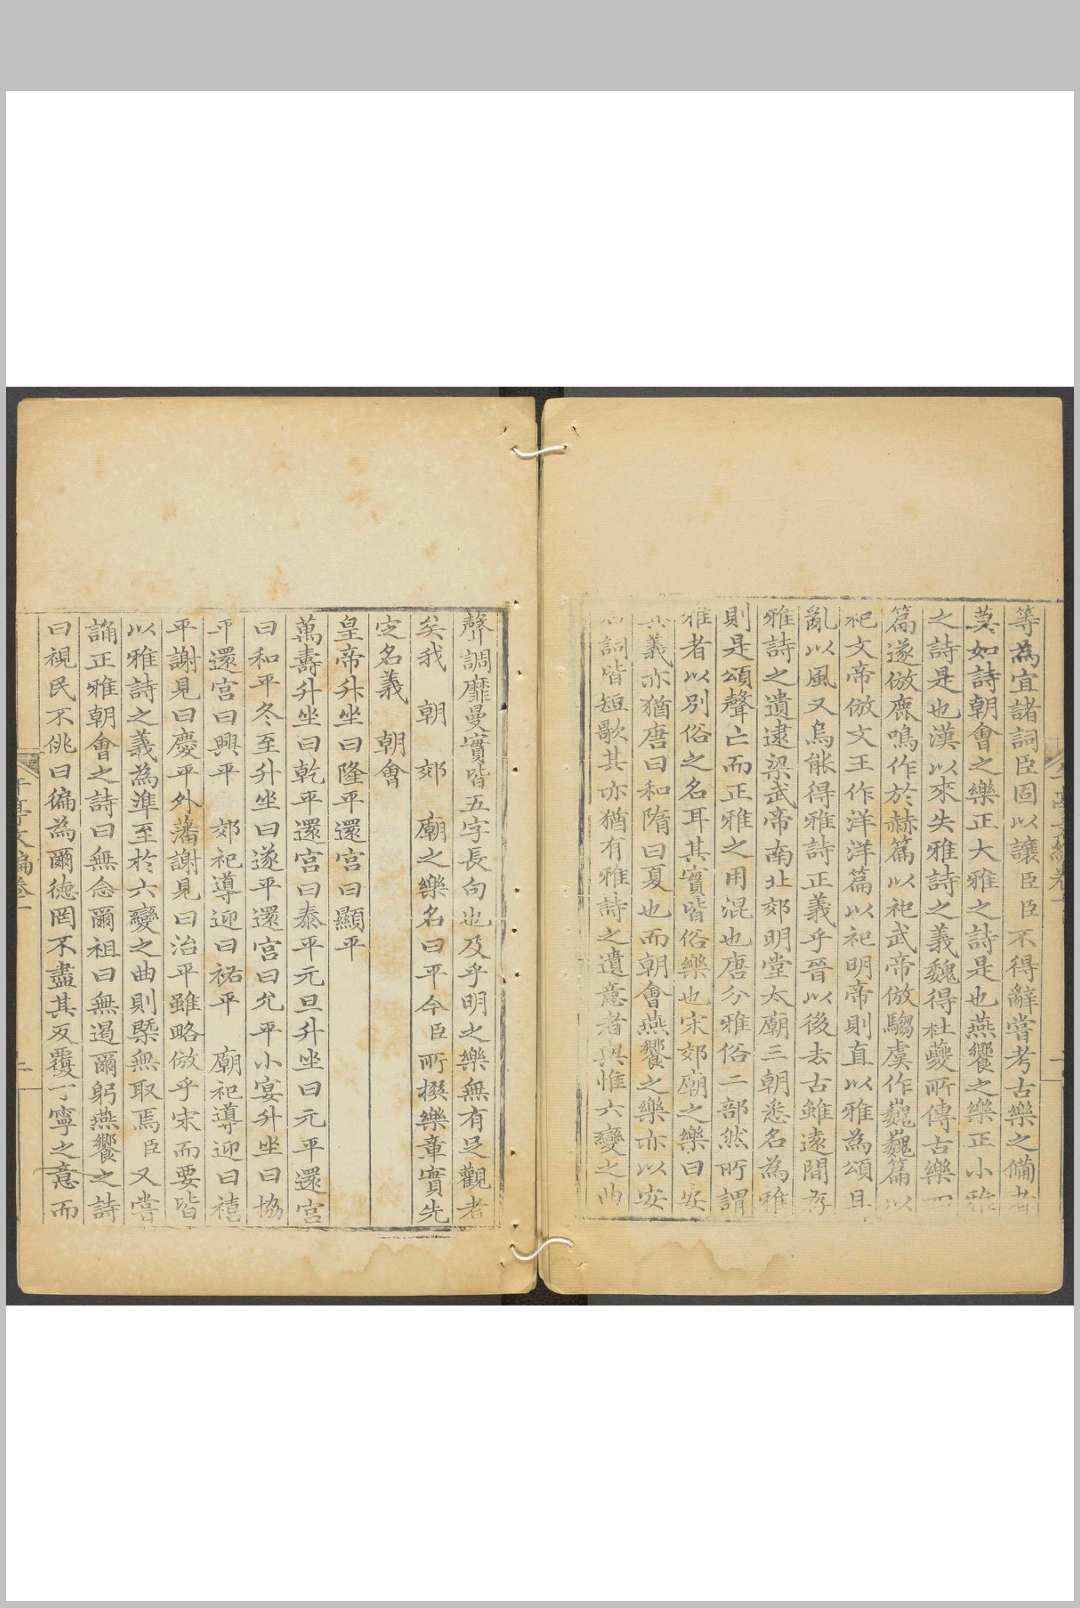 等為宜諸詞臣固以讓臣臣不得辭嘗考古樂之備者
莫如詩朝會之樂正大雅之詩是也燕饗之樂正小雅
之詩是也漢以來失雅詩之義魏得杜夔所傳古樂四
篇遂倣鹿鳴作於赫篇以祀武帝倣騶虞作巍巍篇以
祀文帝倣文王作洋洋篇以祀明帝則直以雅為頌且
亂以風又烏能得雅詩正義乎晉以後去古雖遠間存
雅詩之遺逮梁武帝南北郊明堂太廟三朝悉名為雅
則是頌聲亡而正雅之用混也唐分雅俗二部然所謂
雅者以別俗之名耳其實皆俗樂也宋郊廟之樂曰安
其義亦猶唐曰和隋曰夏也而朝會燕饗之樂亦以安
詞皆短歌其亦猶有雅詩之遺意者與惟六變之曲
聲調靡曼實皆五字長句也及乎明之樂無有足觀者
矣我 朝 郊 廟之樂名曰平今臣所撰樂章實先
定名義 朝會
皇帝升坐曰隆平還宮曰顯平
萬壽升坐曰乾平還宮曰泰平元旦升坐曰元平還宮
曰和平冬至升坐曰遂平還宮曰允平小宴升坐曰協
平還宮曰興平 郊祀導迎曰祐平 廟祀導迎曰禧
平謝見曰慶平外藩謝見曰治平雖略倣乎宋而要皆
以雅詩之義為準至於六變之曲則槩無取焉臣又嘗
誦正雅朝會之詩曰無念爾祖曰無遏爾躬燕饗之詩
曰視民不恌曰徧為爾德罔不盡其反覆丁寧之意而
亭文編卷一